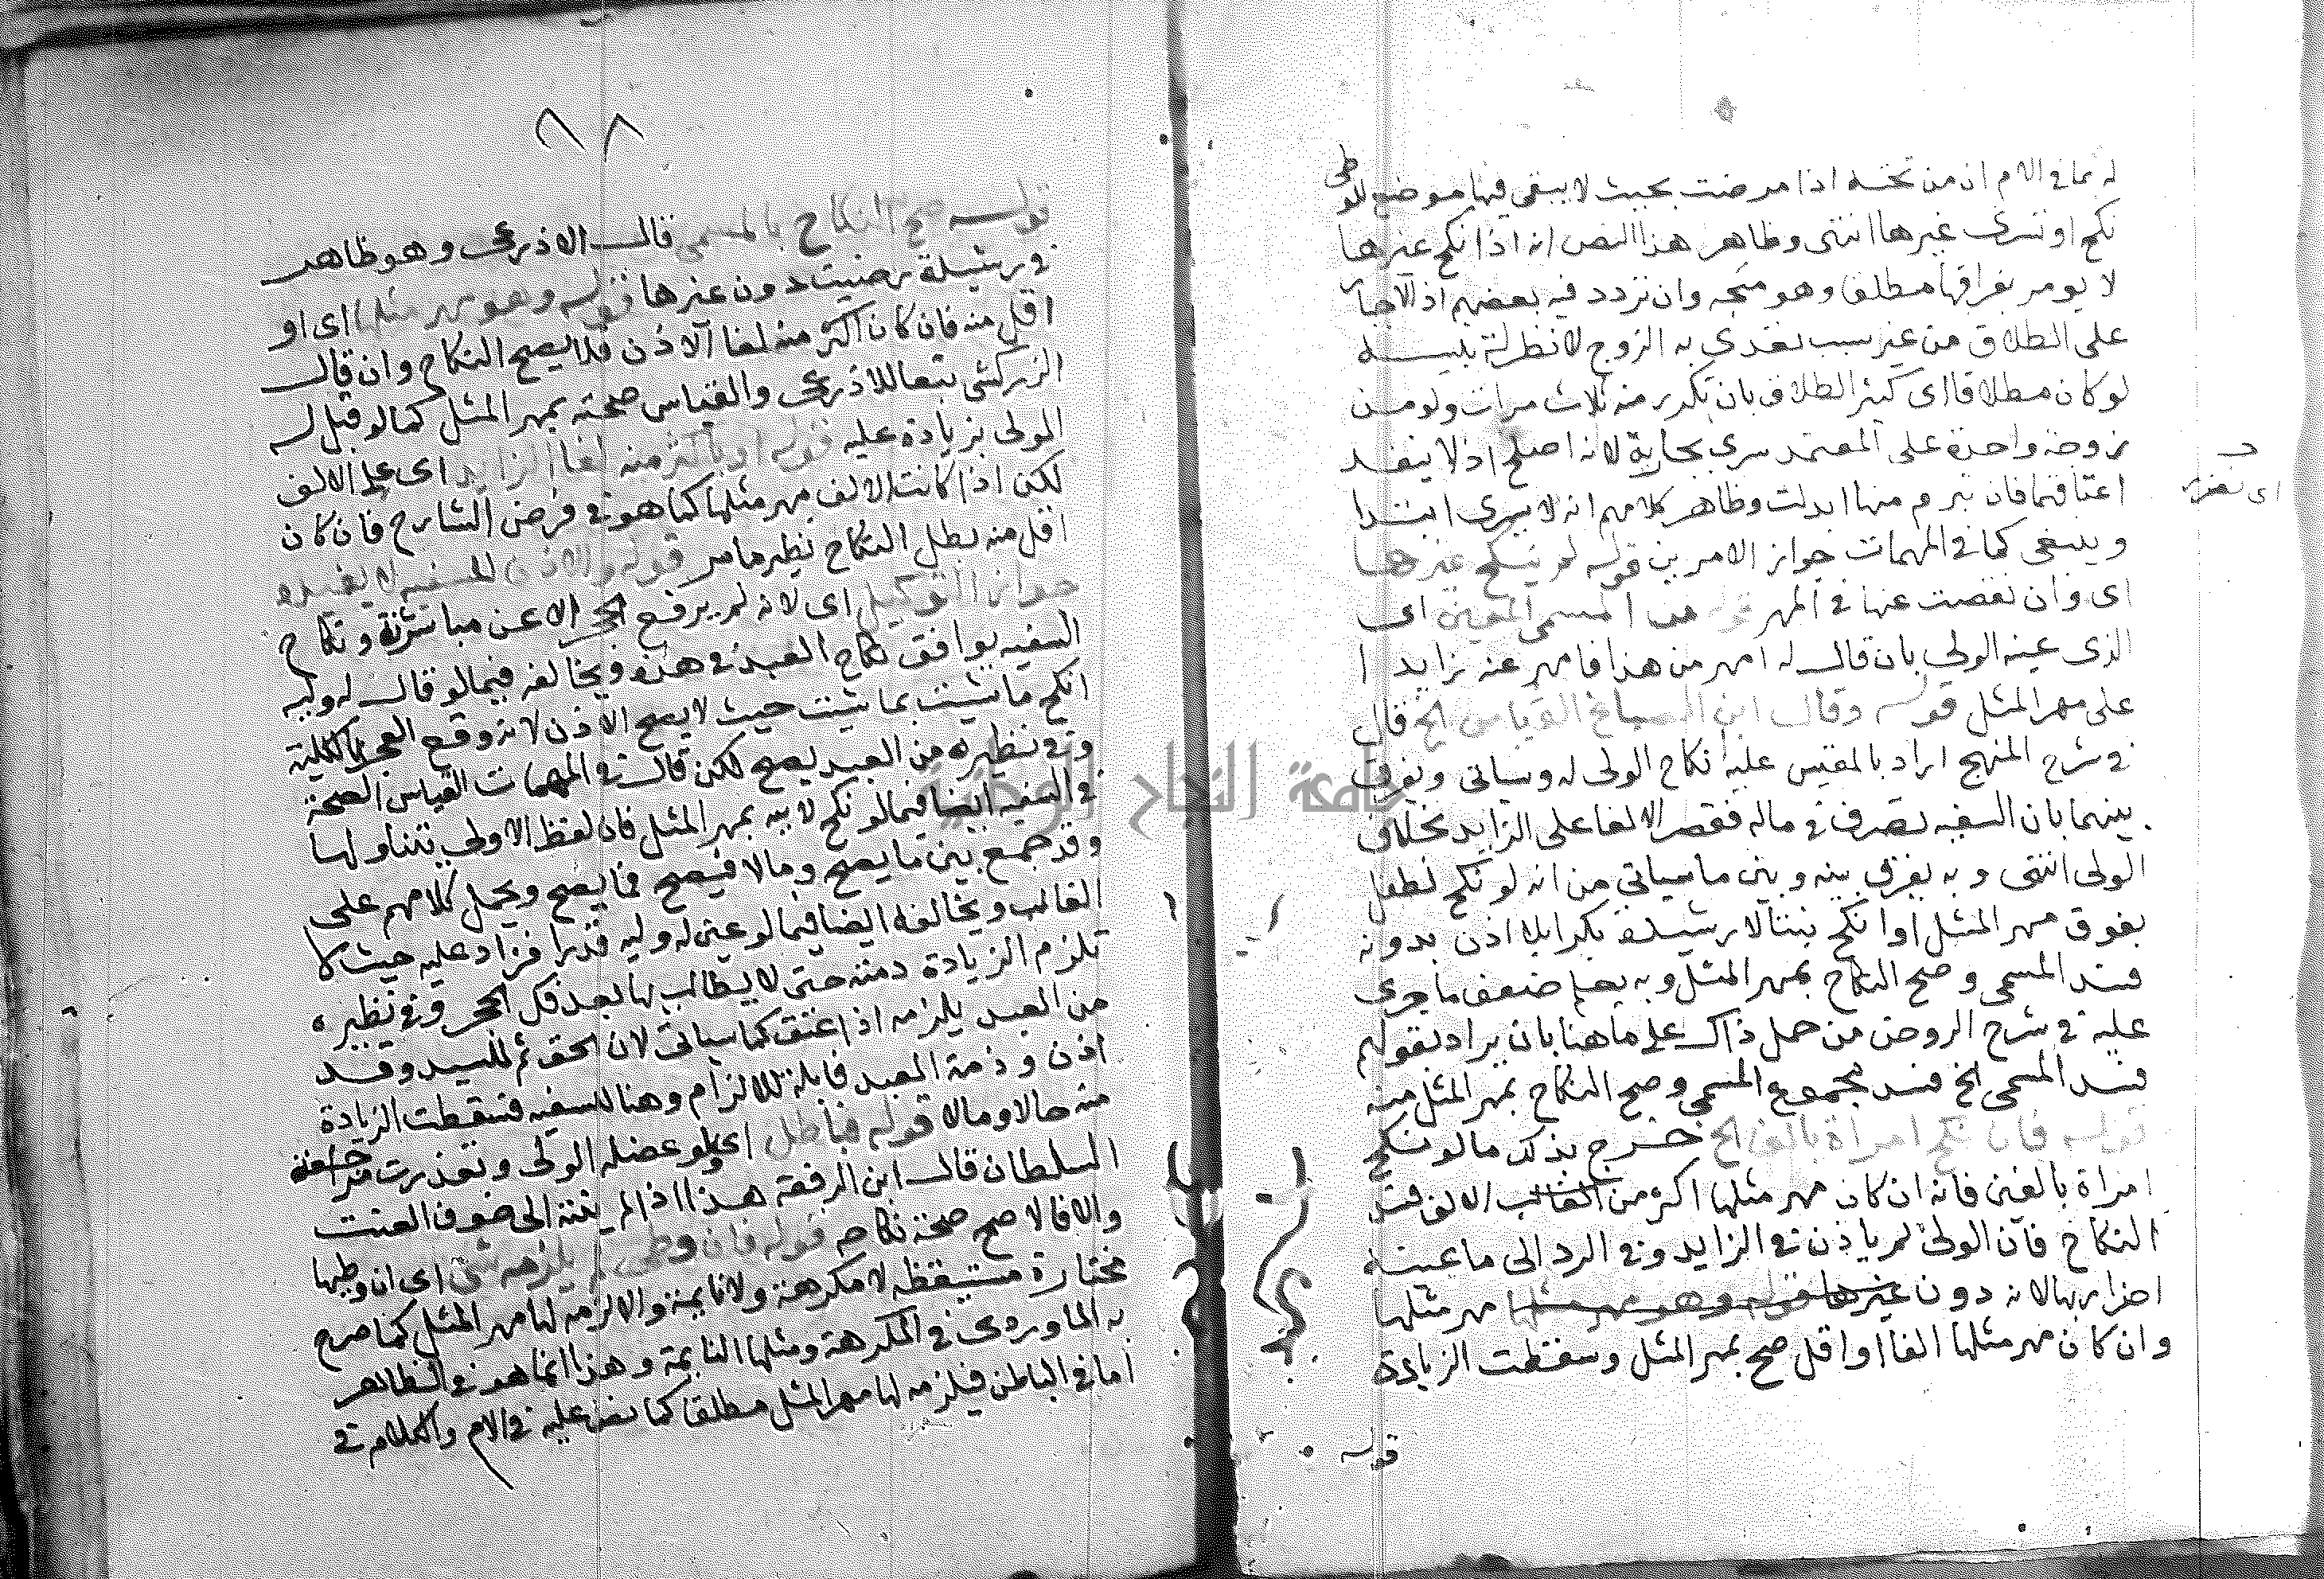 له بما في الام ان من تحته اذا مرضت بحيث لا يبقى فيها موضع للوطي
نكح او تسرى غيرها انتهى وظاهر هذا النص انه اذا نكح غيرها
لا يومر بفراقها مطلقا وهو متجه وان تردد فيه بعضهم اذ الاجبار
على الطلاق من غير سبب تعدى به الزوج لا نظر له
لو كان مطلاقا اى كثير الطلاق بان تكرر منه ثلاث مرات ولو من
زوجة واحدة على المعتمد سرى بجارية لانه اصلح اذ لا ينفذ
اعتاقها فان تبرم منها ابدلت وظاهر كلامهم انه لا يسرى ابتدا
وينبغى كما في المهمات جواز الامرين قوله لم ينكح غيرها
اى وان نقصت عنها في المهر قوله من المسمى المعين اى
الذى عينه الولي بان قال له امهر من هذا فامهر عنه زايدا
على مهر المثل قوله وقال ابن الصباغ القياس الخ قال
في شرح المنهج اراد بالمقيس عليه انكاح الولى له وسياتى ويفرق
بينهما بان السفيه تصرف في ماله فقصر الالغا على الزايد بخلاف
الولى انتهى وبه يفرق بينه وبين ما سياتي من انه لو نكح لطفل
بفوق مهر المثل او انكح بنتا لا رشيدة بكرا بلا اذن بدونه
فسد المسمى وصح النكاح بمهر المثل وبه يعلم ضعف ما جرى
عليه في شرح الروض من حمل ذاك على ما هنا بان يراد بقولهم
فسد المسمى الخ فسد مجموع المسمى وصح النكاح بمهر المثل منه
قوله فان نكح امراة بالف الخ خرج بذلك ما لو نكح
امراة بالفين فانه ان كان مهر مثلها اكثر من الف الالف فسد
النكاح فان الولى لم ياذن في الزايد وفي الرد الى ما عينه
اضرار بها لانه دون غيرها قوله وهو مهر مثلها مهر مثلها
وان كان مهر مثلها الفا او اقل صح بمهر المثل وسقطت الزيادة
قوله
٩٨
قوله صح النكاح بالمسمى قال الاذرعى وهو ظاهر
في رشيدة رضيت دون غيرها قوله وهو مهر مثلها اى او
اقل منه فان كان اكثر منه لغا الاذن فلا يصح النكاح وان قال
الزركشى تبعا للاذرعى والقياس صحته بمهر المثل كما لو قبل له
الولى بزيادة عليه قوله او باكثر منه لغا الزايد اى على الالف
لكن اذا كانت الالف مهر مثلها كما هو في فرض الشارح فان كان
اقل منه بطل النكاح نظير ما مر قوله والاذن للسفيه لا يفيده
جواز التوكيل اى لانه لم يرفع الحجر الا عن مباشرته ونكاح
السفيه يوافق نكاح العبد في هذه ويخالفه فيما لو قال له وليه
انكح ما شيت بما شيت حيث لا يصح الاذن لانه رفع الحجر بالكلية
وفي نظيره من العبد يصح لكن قال في المهمات القياس الصحة
في السفيه ايضا فيما لو نكح لابيه بمهر المثل فان لفظ الاولى يتناولها
وقد جمع بين ما يصح وما لا فيصح فما يصح ويحمل كلامهم على
الغالب ويخالفه ايضا فيما لو عين له وليه قدرا فزاد عليه حيث لا
تلزم الزيادة ذمته حتى لا يطالب بها بعد فك الحجر وفي نظيره
من العبد يلزمه اذا عتق كما سياتى لان الحق ثم للسيد وقد
اذن وذمة العبد قابلة للالزام وهنا للسفيه فسقطت الزيادة
منه حالا ومالا قوله فباطل اى ولو عضله الولى وتعذرت مراجعة
السلطان قال ابن الرفعة هذا اذا لم ينته الى خوف العنت
والا فالاصح صحة نكاحه قوله فان وطى لم يلزمه شى اى ان وطيها
مختارة مستيقظه لا مكرهة ولا نايمة والا لزمه لها مهر المثل كما صرح
به الماوردى في المكرهة ومثلها النايمة وهذا انما هو في الظاهر
اما في الباطن فيلزمه لها مهر المثل مطلقا كما نص عليه في الام والكلام في
جامعة النجاح الوطنية